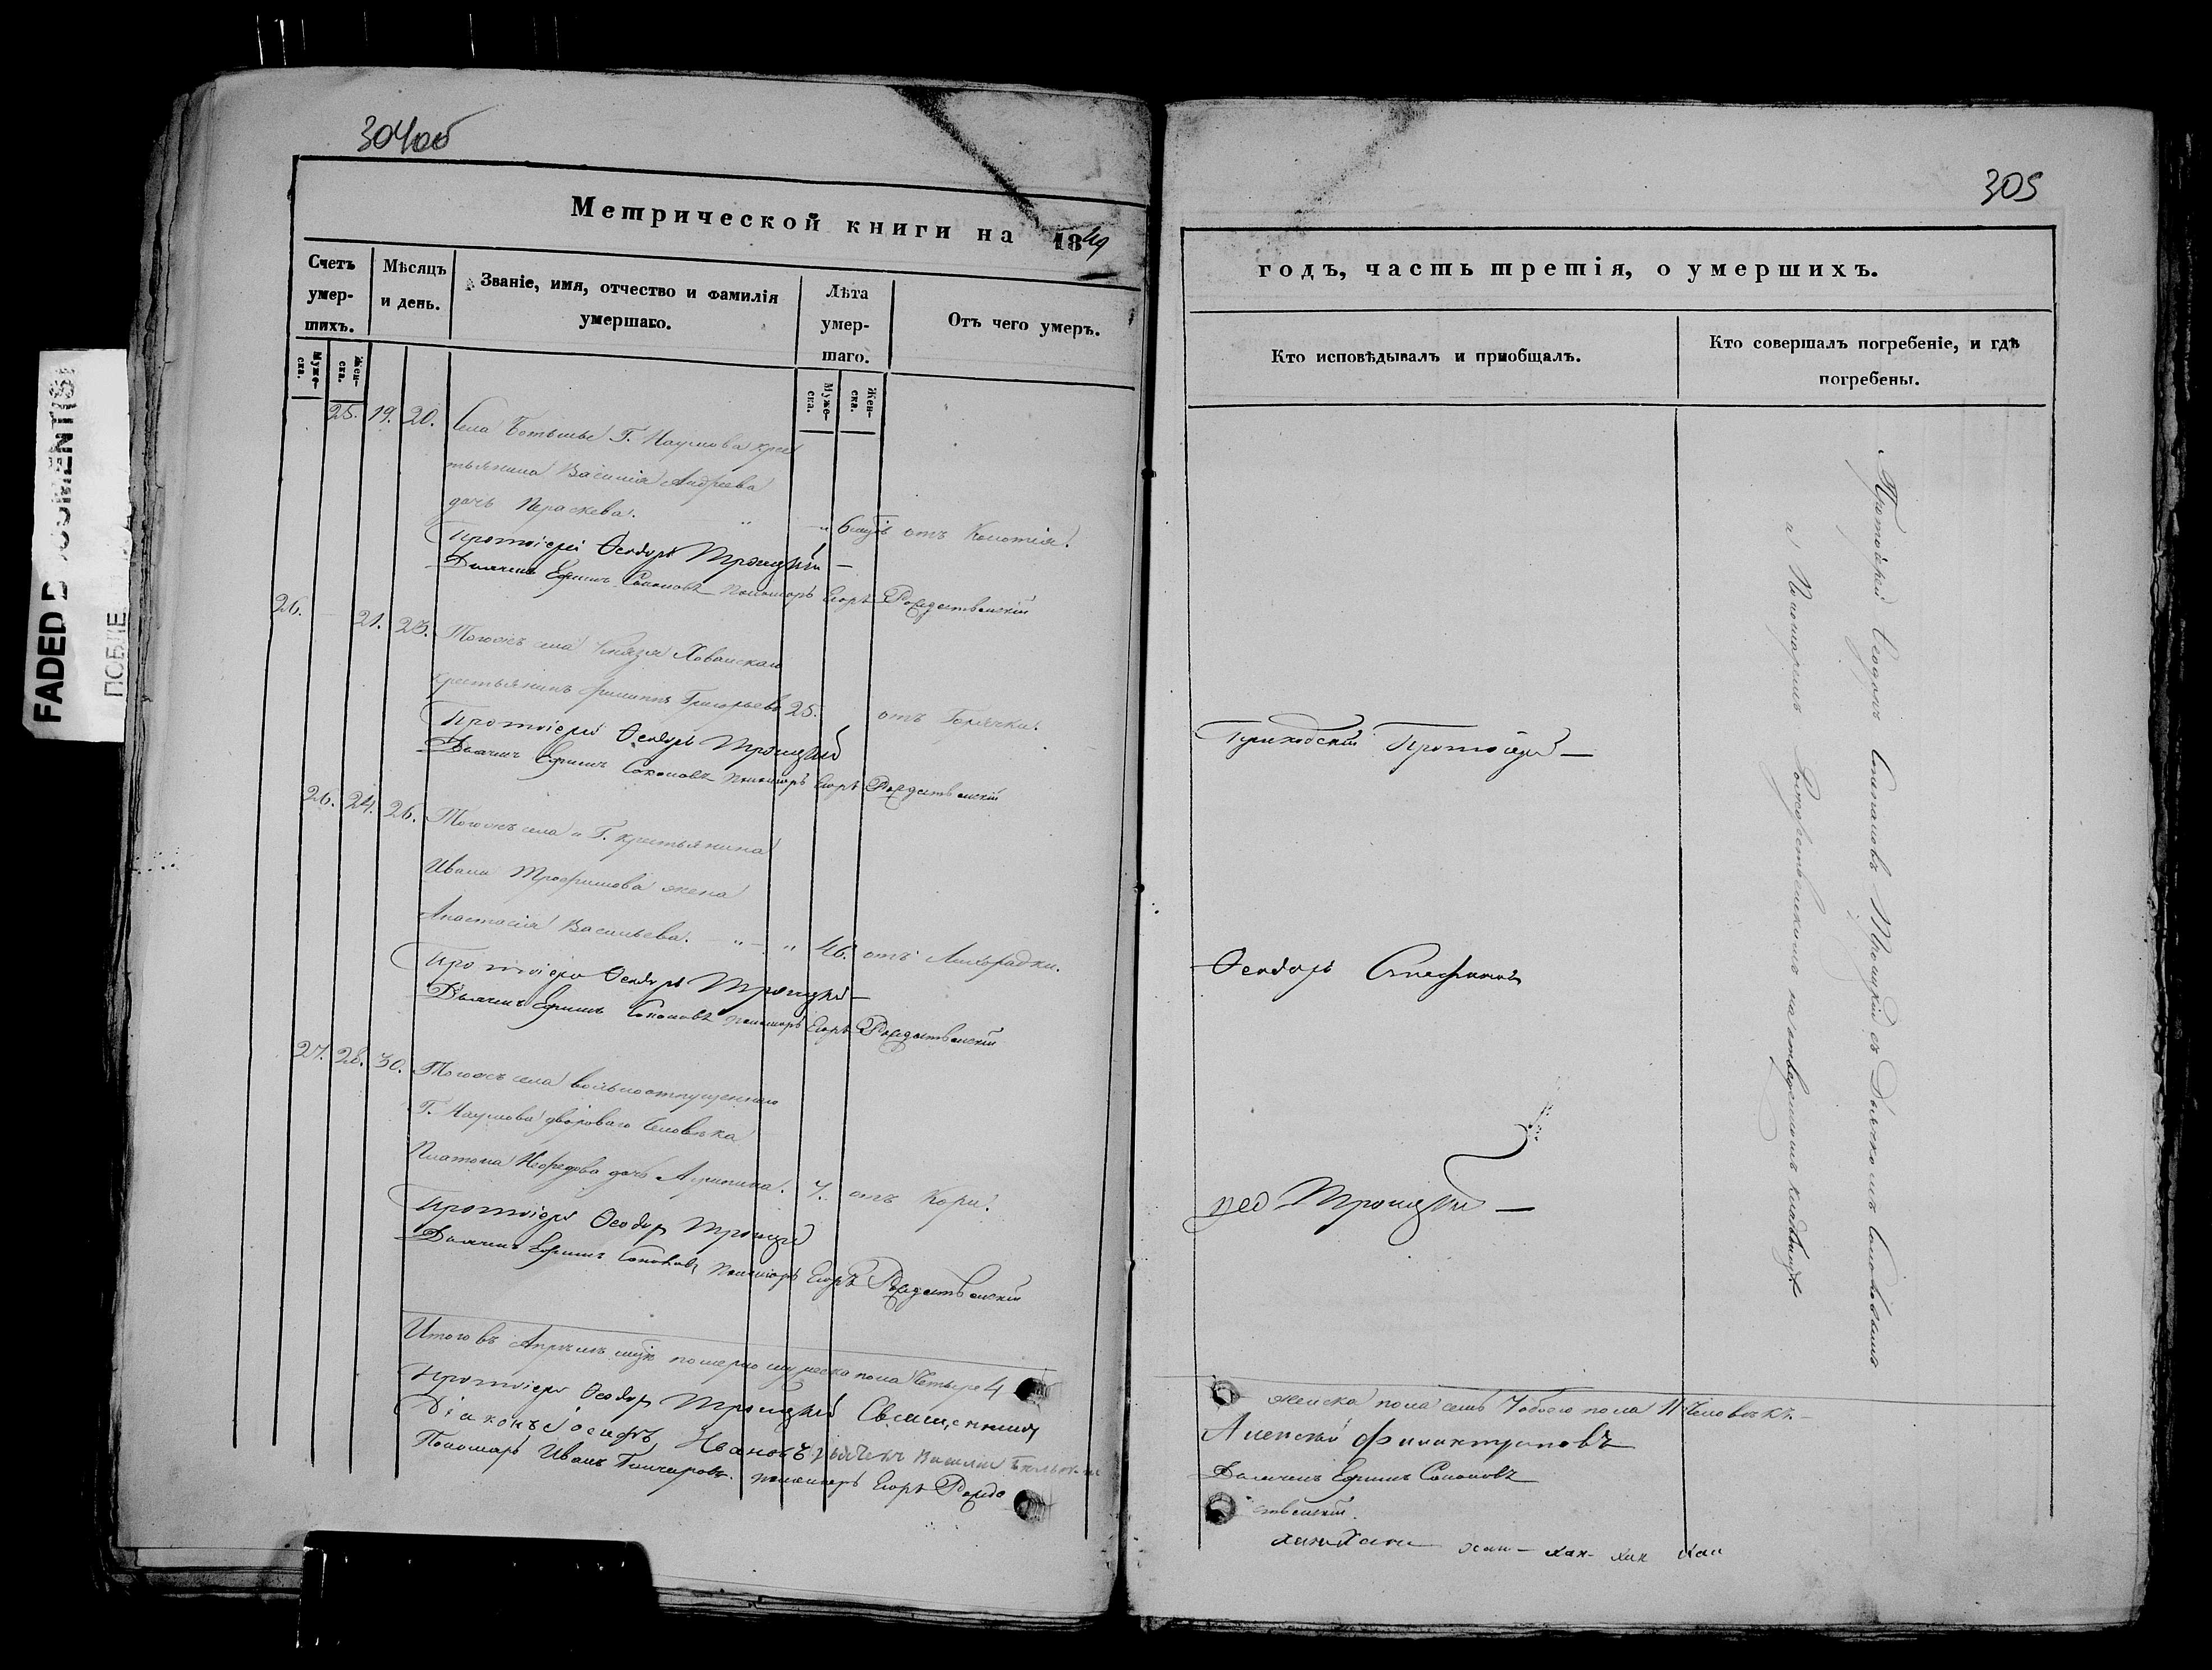 304об
Метрической книги на 1849
Счетъ умер-шихъ.
Мѣсяцъ и день.
Званіе, имя, отчество и фамилія умершаго.
Лѣта умер-шаго.
Отъ чего умеръ.
Муже-ска.
Жен-ска.
Муже-ска.
Жен-ска.
25. 19. 20. Села Г. Наумова крес
тьянина Василія Андреева
дочь Параскева. 6 отъ
Протоіерей Ѳеодоръ Троицкій
Дьячекъ Ефимъ Соколовъ Пономарь Егоръ Рождественскій
26. 21. 23. Тогожъ села Князя Хованскаго
крестьянинъ Филиппъ Григорьевъ 25. отъ Горячки.
Протоіерей Ѳеодоръ Троицкій
Дьячекъ Ефимъ Соколовъ Пономарь Егоръ Рождественскій
26. 24. 26. Тогожъ села и Г. крестьянина
Ивана Трофимова жена
Анастасія Васильева. 46. отъ Лихорадки.
Протоіерей Ѳеодоръ Троицкій
Дьячекъ Ефимъ Соколовъ Пономарь Егоръ Рождественскій
27. 28. 30. Тогожъ села вольноотпущеннаго
Г. Наумова двороваго человѣка
Платона дочь 7. отъ Кори.
Протоіерей Ѳеодор Троицкій
Дьячекъ Ефимъ Соколовъ Пономарь Егоръ Рождественскій
Итого въ Апрѣлѣ померло мужеска пола Четыре 4
Протоіерей Ѳеодор Троицкій Священникъ
Діаконъ Іосифъ Ивановъ дьячекъ Василій
Пономарь Иванъ Гончаровъ. пономарь Егоръ Рожде
FADED DOCUMENT(S)
305
годъ, часть третія, о умершихъ.
Кто исповѣдывалъ и пріобщалъ.
Кто совершалъ погребеніе, и гдѣ погребены.
Приходскій Протоіерей
Ѳеодоръ Стефановъ
Троицкій
Протоіерей Ѳеодоръ Стефановъ Троицкій съ Дьячкомъ Соколовымъ
и Пономаремъ Рождественскимъ на отведенномъ кладбищѣ
женска пола семь 7 обоего пола 11 Человѣкъ.
Алексѣй Филантроповъ
Дьячекъ Ефимъ Соколовъ
ственскій.